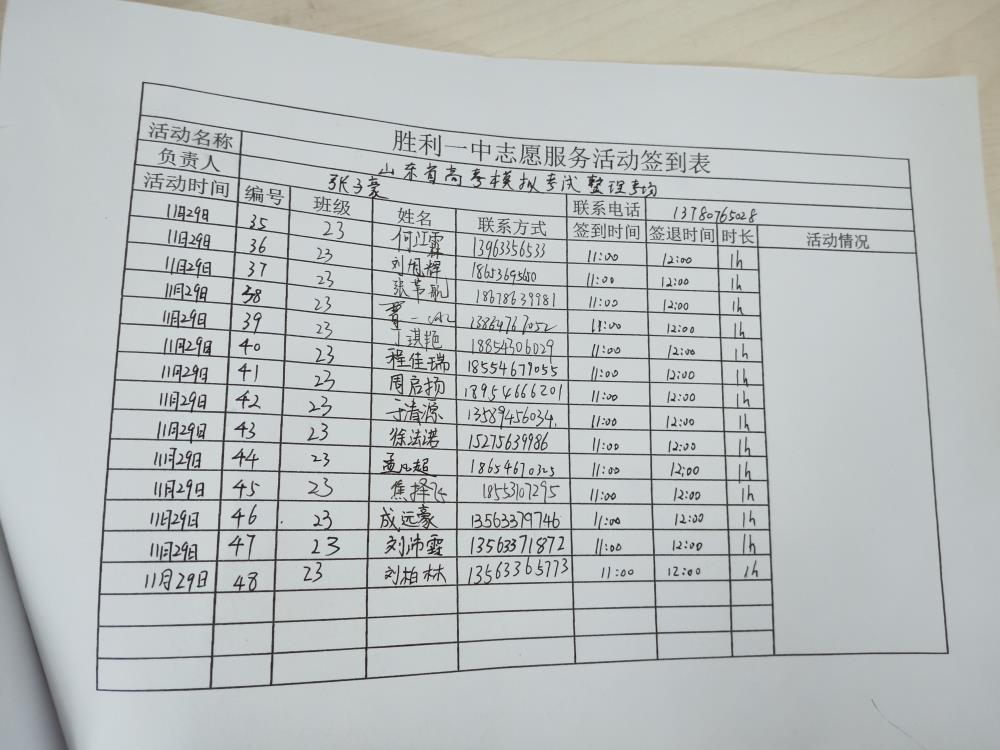 胜利一中志愿服务活动签到表
活动名称 山东省高考模拟考试整理考场
负责人 张子豪 联系电话 13780765028
活动时间 编号 班级 姓名 联系方式 签到时间 签退时间 时长 活动情况
11月29日 35 23 何江霖 13963356533 11:00 12:00 1h
11月29日 36 23 11:00 12:00 1h
11月29日 37 23 张苇航 18678639981 11:00 12:00 1h
11月29日 38 23 13864767052 11:00 12:00 1h
11月29日 39 23 丁琪艳 18854306029 11:00 12:00 1h
11月29日 40 23 程佳瑞 18554679055 11:00 12:00 1h
11月29日 41 23 周启扬 18954666201 11:00 12:00 1h
11月29日 42 23 于清源 13589456034 11:00 12:00 1h
11月29日 43 23 徐法诺 15275639986 11:00 12:00 1h
11月29日 44 23 孟凡超 18654670325 11:00 12:00 1h
11月29日 45 23 焦择飞 18553107295 11:00 12:00 1h
11月29日 46 23 成远豪 13563379746 11:00 12:00 1h
11月29日 47 23 刘沛霖 13563371872 11:00 12:00 1h
11月29日 48 23 刘柏林 13563365773 11:00 12:00 1h